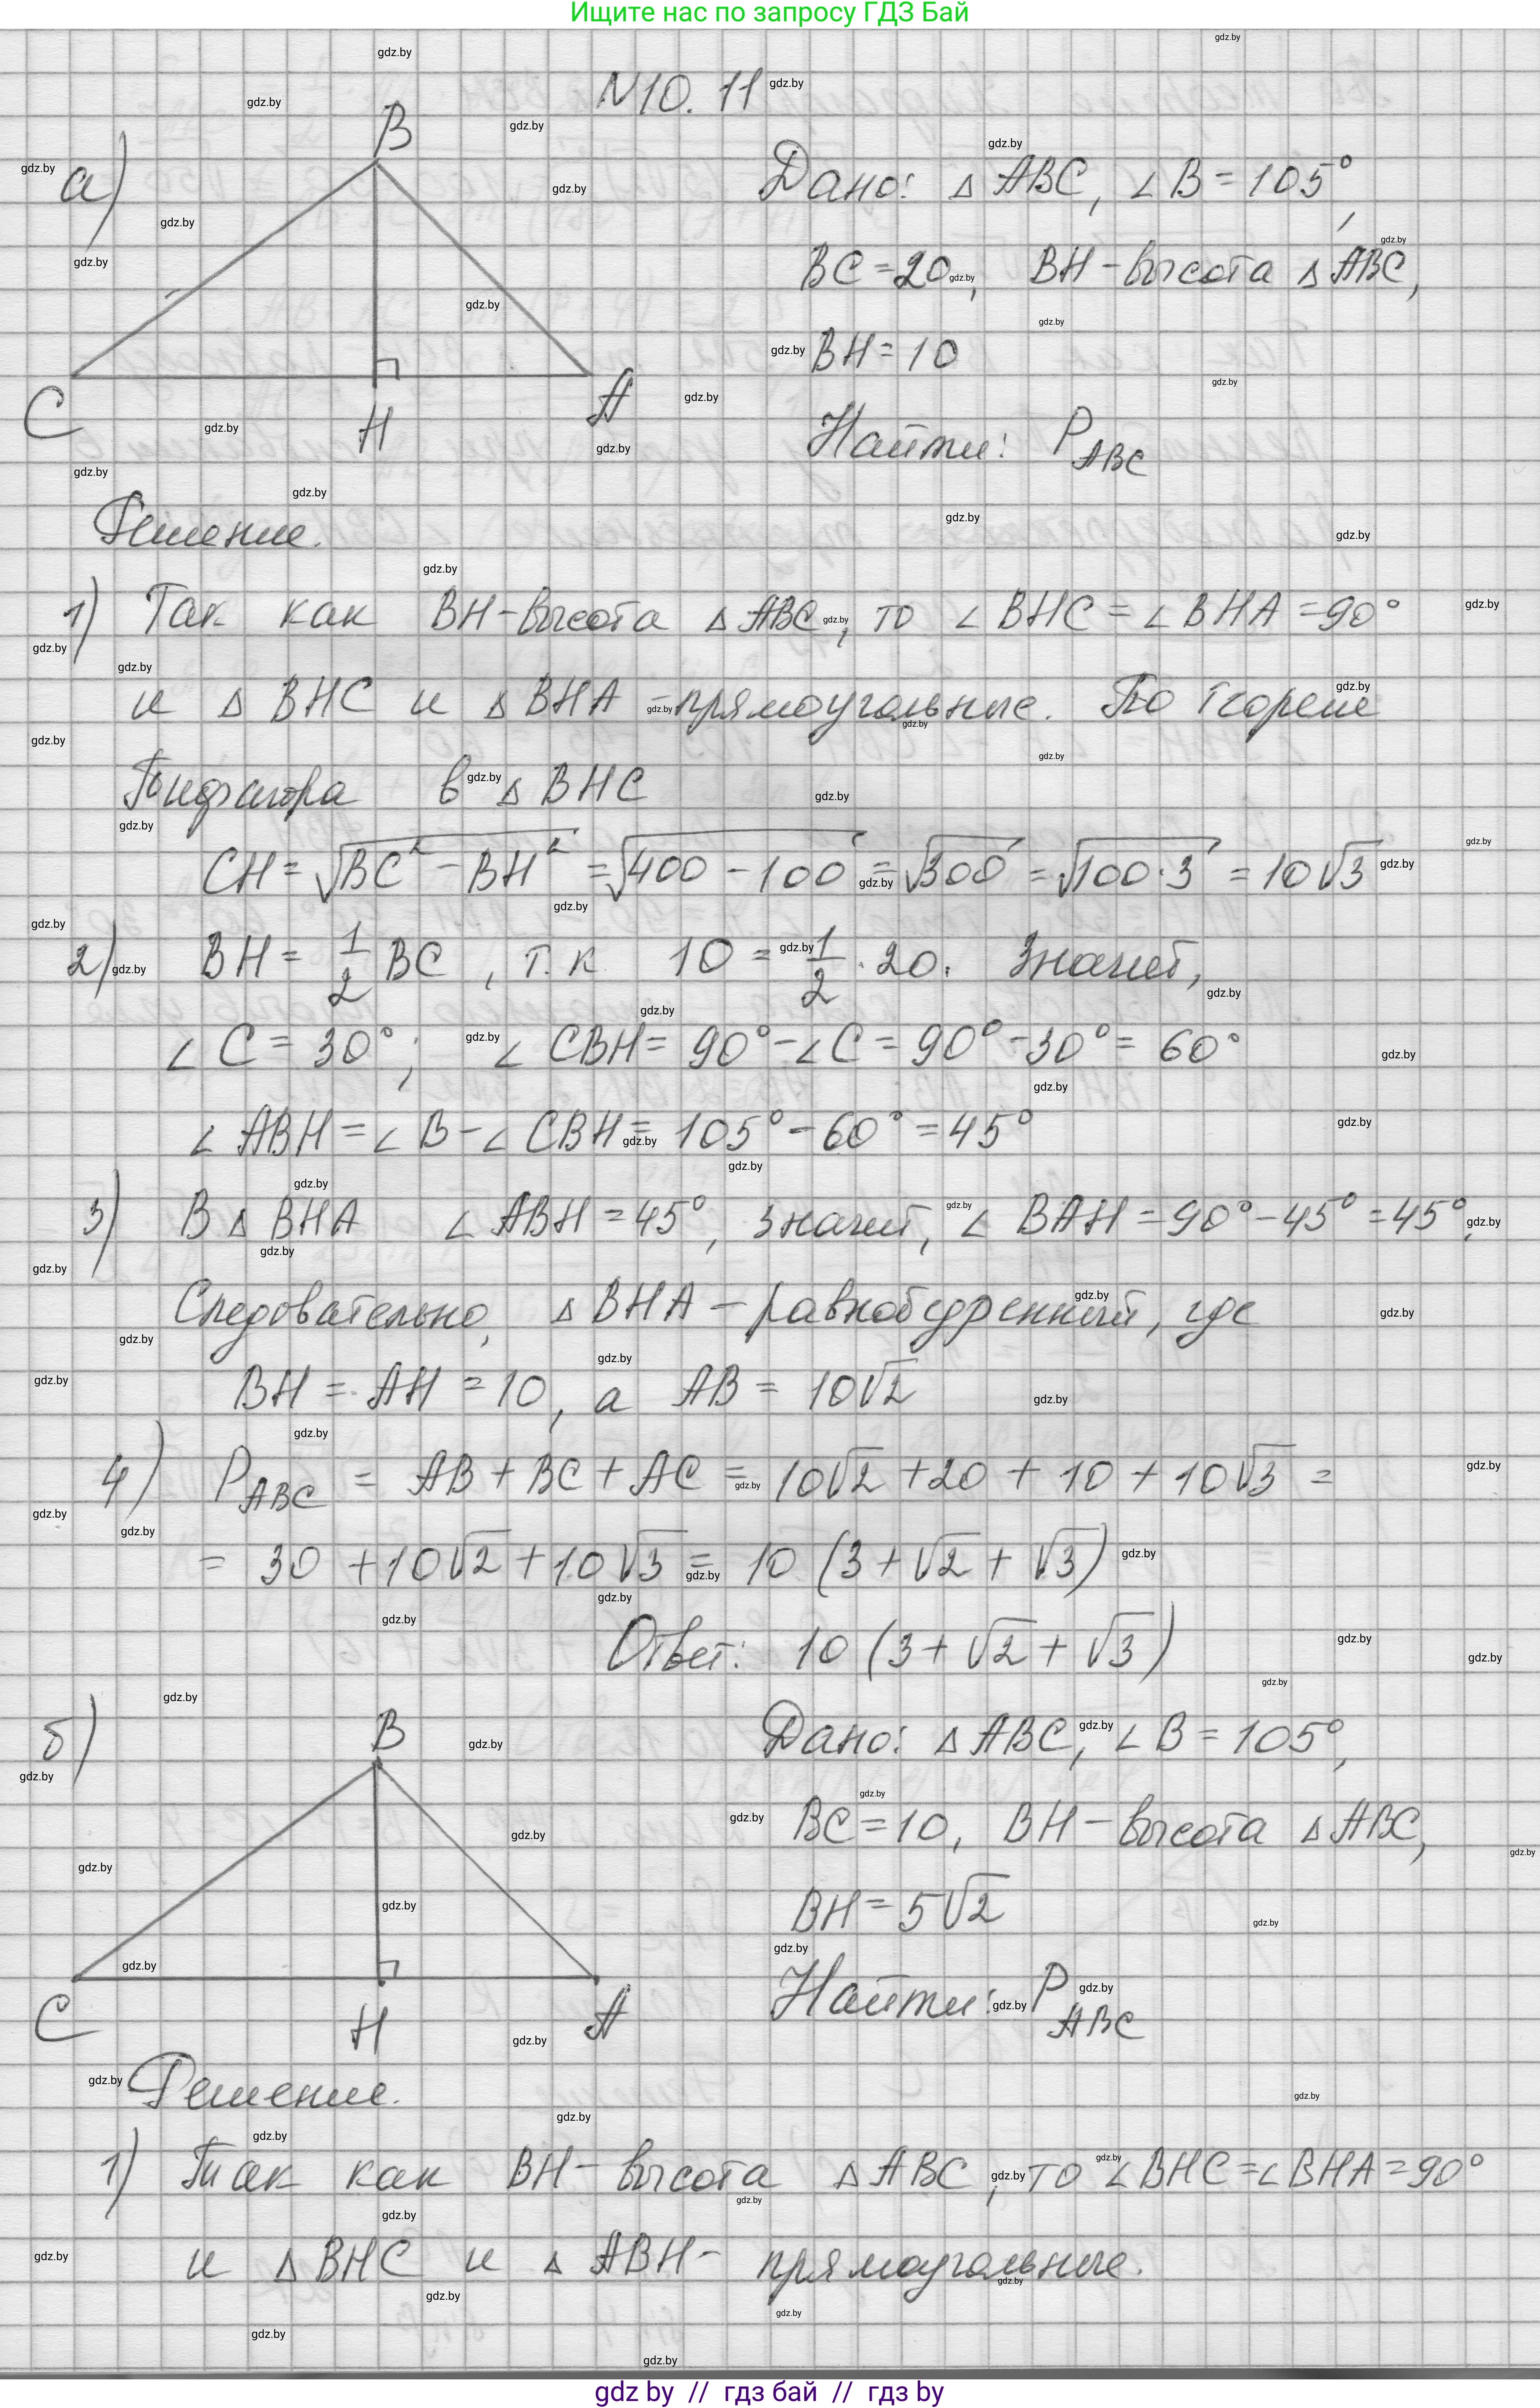 Ищите нас по запросу ГДЗ Бай
N10. 11
а)
B
C
H
A
Дано: △ ABC, ∠ B = 105°,
BC = 20, BH - высота △ ABC,
BH = 10
Найти: P_ABC
Решение.
1) Так как BH - высота △ ABC, то ∠ BHC = ∠ BHA = 90°
и △ BHC и △ BHA - прямоугольные. По теореме
Пифагора в △ BHC
CH = √(BC² - BH²) = √(400 - 100) = √300 = √(100·3) = 10√3
2) BH = 1/2 BC, т.к 10 = 1/2 · 20. Значит,
∠ C = 30°; ∠ CBH = 90° - ∠ C = 90° - 30° = 60°
∠ ABH = ∠ B - ∠ CBH = 105° - 60° = 45°
3) В △ BHA ∠ ABH = 45°, значит, ∠ BAH = 90° - 45° = 45°.
Следовательно, △ BHA - равнобедренный, где
BH = AH = 10, а AB = 10√2
4) P_ABC = AB + BC + AC = 10√2 + 20 + 10 + 10√3 =
= 30 + 10√2 + 10√3 = 10 (3 + √2 + √3)
Ответ: 10 (3 + √2 + √3)
б)
B
C
H
A
Дано: △ ABC, ∠ B = 105°,
BC = 10, BH - высота △ ABC,
BH = 5√2
Найти: P_ABC
Решение.
1) Так как BH - высота △ ABC, то ∠ BHC = ∠ BHA = 90°
и △ BHC и △ ABH - прямоугольные.
gdz.by
gdz by // гдз бай // гдз by